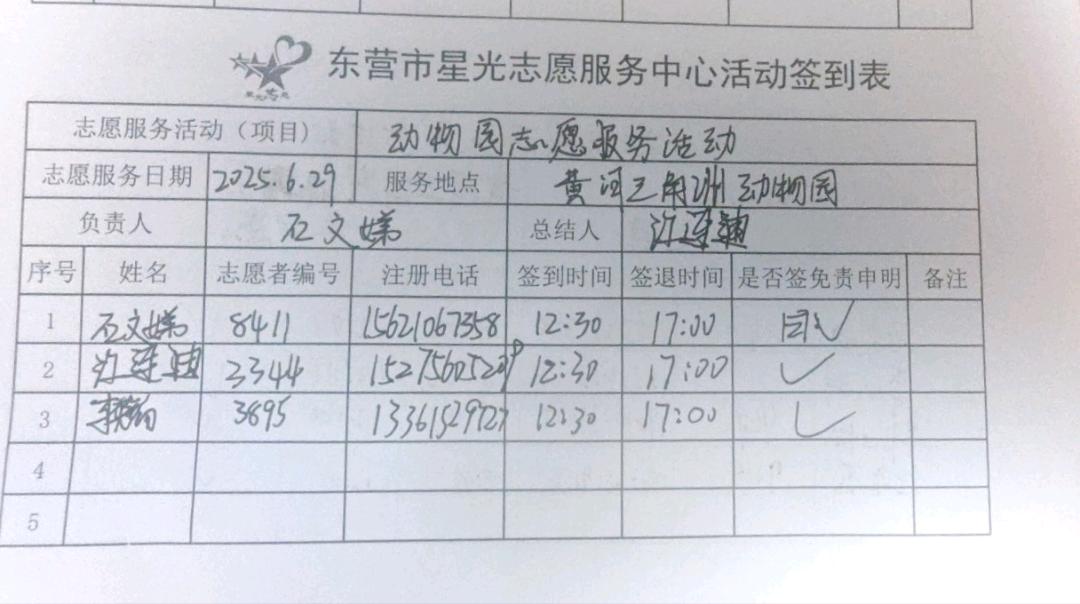 东营市星光志愿服务中心活动签到表
志愿服务活动（项目） 动物园志愿服务活动
志愿服务日期 2025.6.29 服务地点 黄河三角洲动物园
负责人 石文娣 总结人 许连颖
序号 姓名 志愿者编号 注册电话 签到时间 签退时间 是否签免责申明 备注
1 石文娣 8411 15621067358 12:30 17:00 ✓
2 许连颖 2344 12:30 17:00 ✓
3 3895 12:30 17:00 ✓
4
5